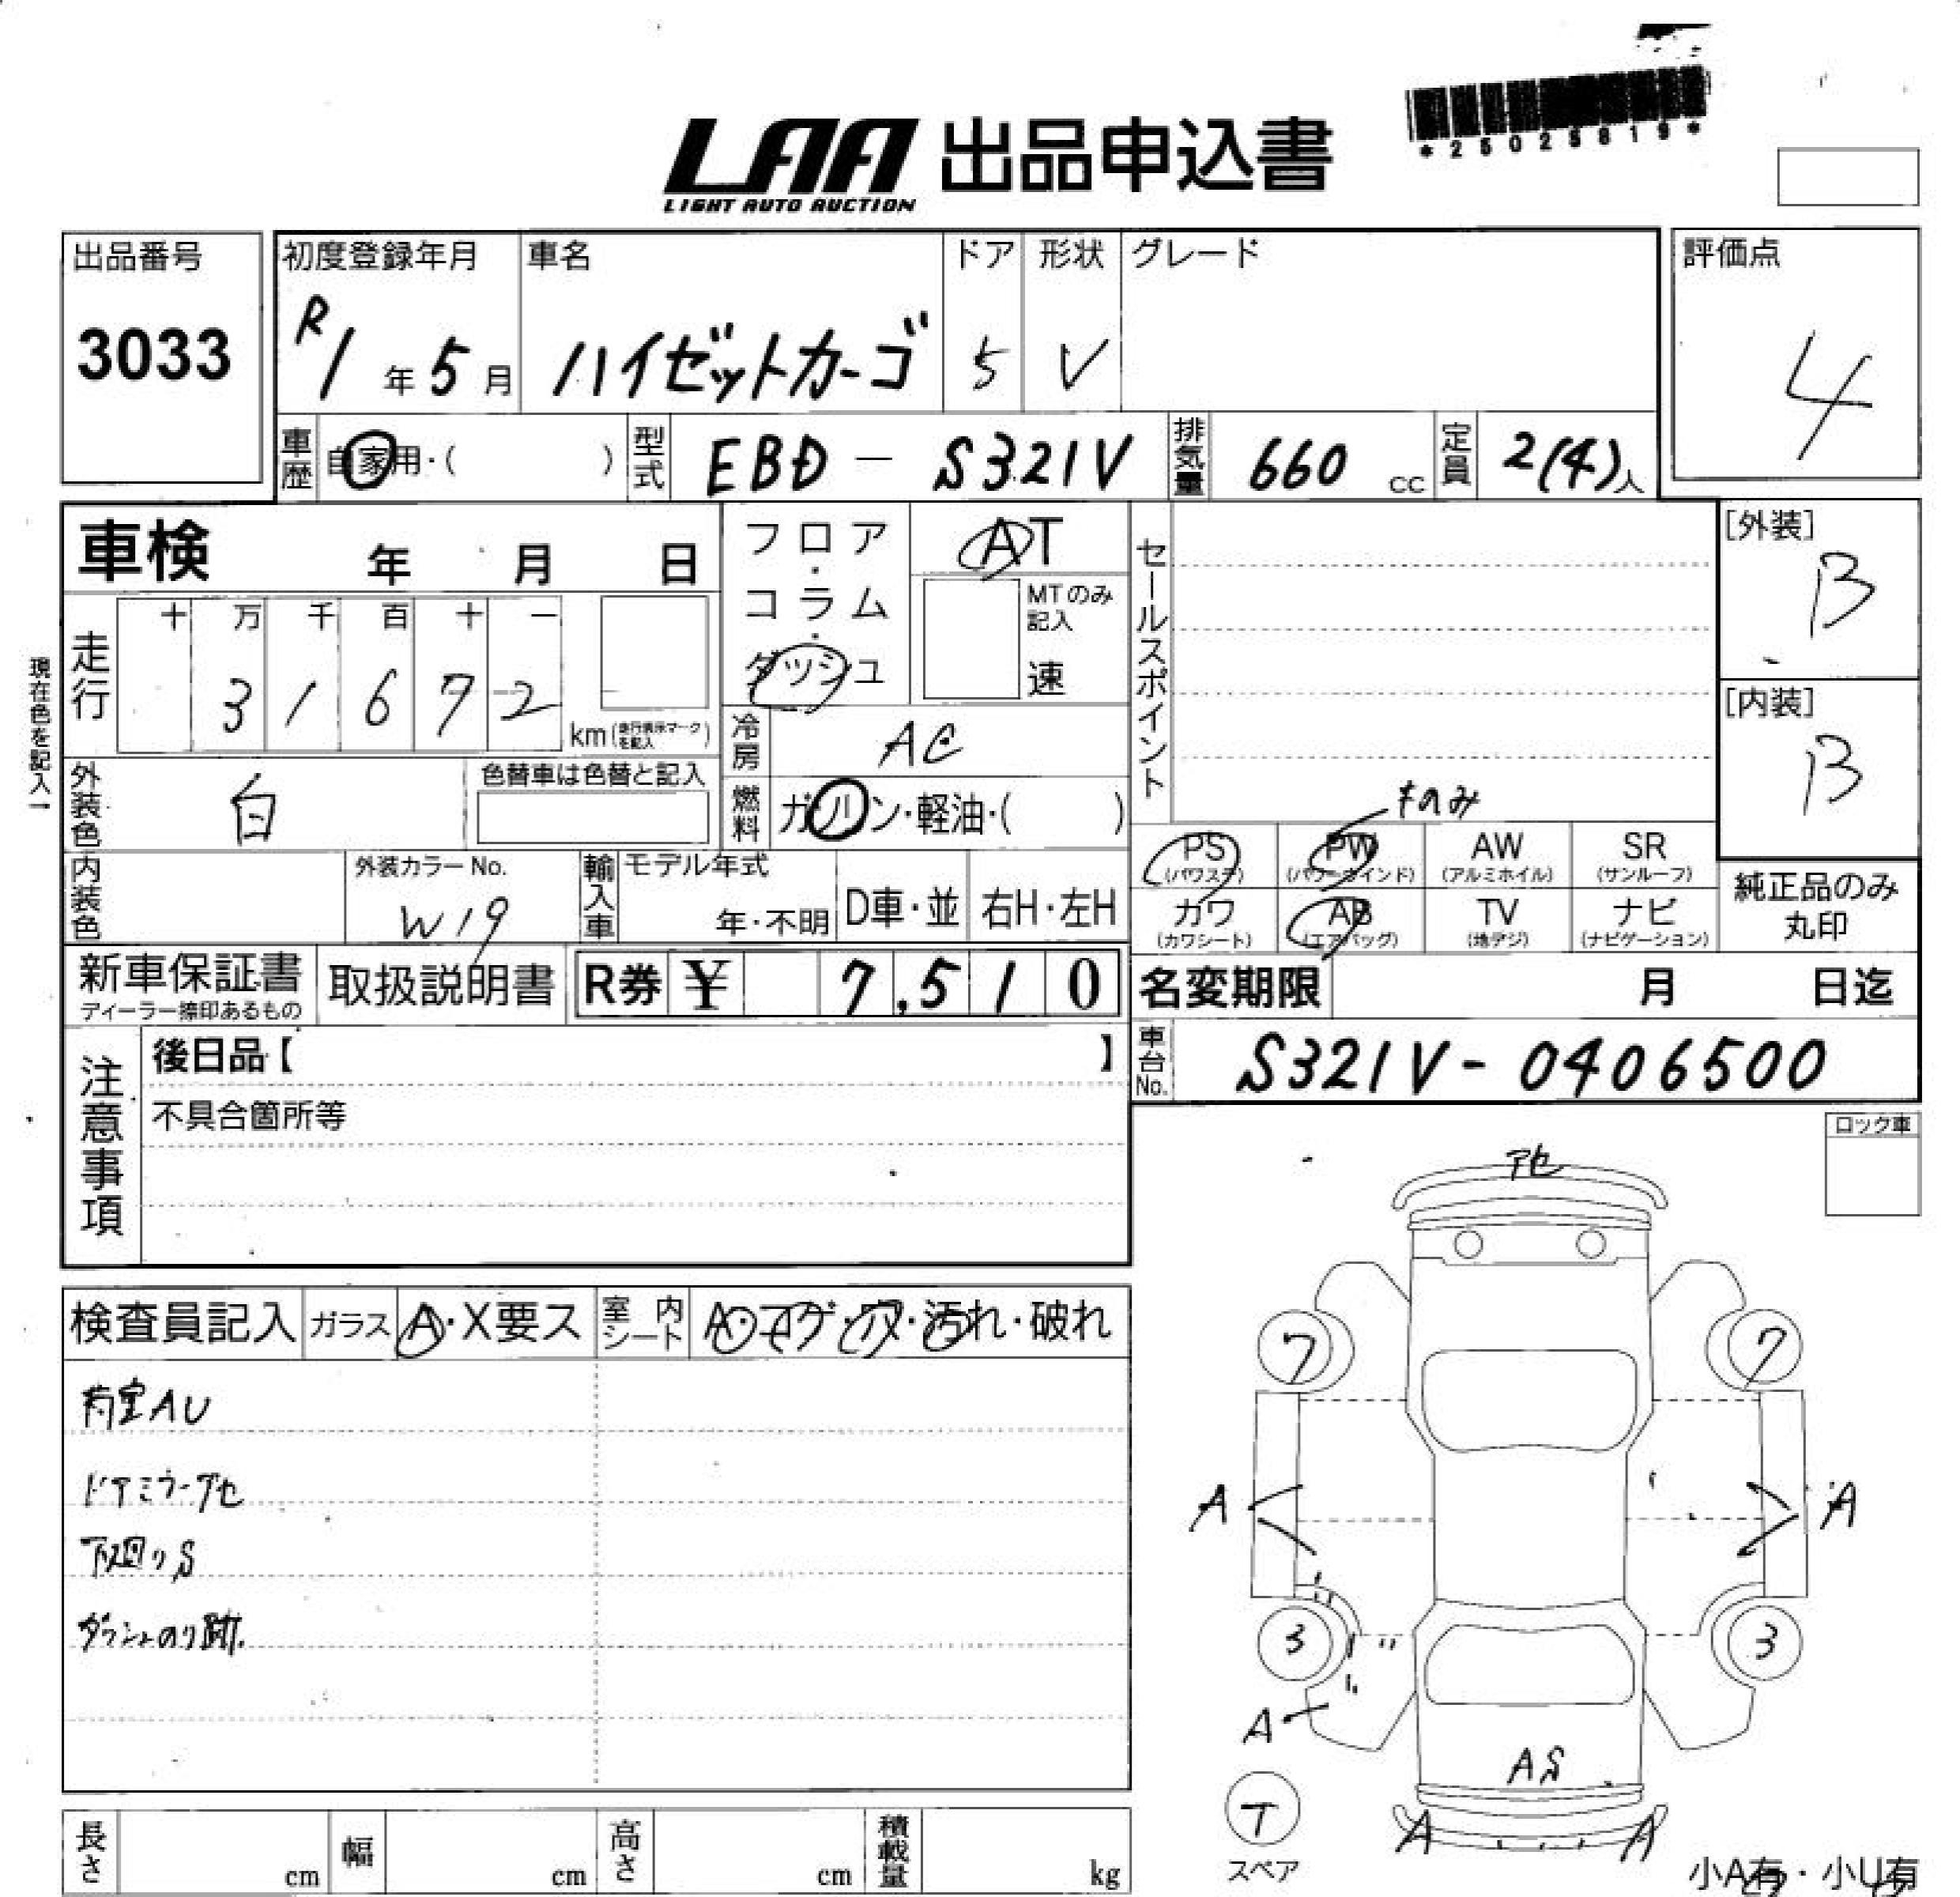 *25025819*
LAA 出品申込書
LIGHT AUTO AUCTION
出品番号 初度登録年月 車名 ドア 形状 グレード 評価点
3033 R1年5月 ハイゼットカーゴ 5 V 4
車歴 自家用・( ) 型式 EBD-S321V 排気量 660 cc 定員 2(4)人
車検 年 月 日 フロア・コラム・ダッシュ AT セールスポイント [外装] B
MTのみ記入 速
現在色を記入→
走行 十 万 千 百 十 一
3 1 6 7 2 km(走行表示マークを記入)
[内装] B
冷房 AC
外装色 白 色替車は色替と記入 燃料 ガソリン・軽油・( )
キのみ
PS(パワステ) PW(パワーウインド) AW(アルミホイル) SR(サンルーフ)
内装色 外装カラーNo. W19 輸入車 モデル年式 年・不明 D車・並 右H・左H
カワ(カワシート) AB(エアバッグ) TV(地デジ) ナビ(ナビゲーション)
純正品のみ丸印
新車保証書 ディーラー捺印あるもの 取扱説明書 R券 ¥ 7,510 名変期限 月 日迄
車台No. S321V-0406500
注意事項 後日品【 】
不具合箇所等
ロック車
検査員記入 ガラス A・X要ス 室内シート A・コゲ・穴・汚れ・破れ
荷室AU
ドアミラーアセ
下廻りS
ダッシュのり跡
アセ
7 7
A A
3 3
A
AS
T
スペア
A A
長さ cm 幅 cm 高さ cm 積載量 kg
小A有・小U有